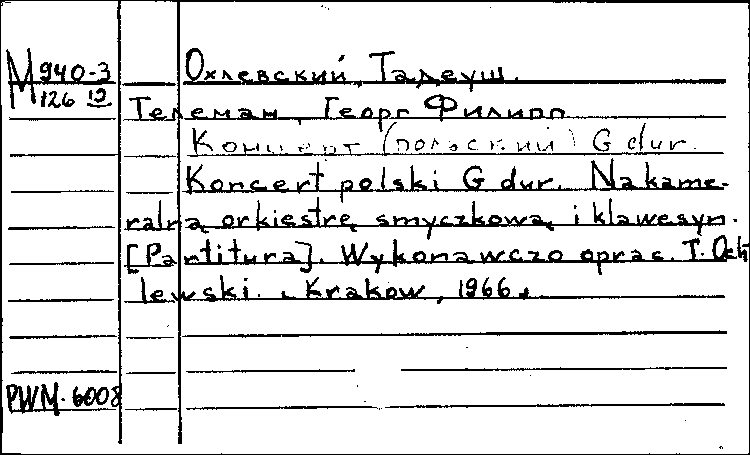 M 940-3 Охлевский, Тадеуш.
126 12
Телеман, Георг Филипп
Концерт (польский) G dur.
Koncert polski G dur. Na kame-
ralną orkiestrę smyczkową i klawesyn.
[Partitura]. Wykonawczo oprac. T. Och
lewski. Krakow, 1966.
PWM-6008